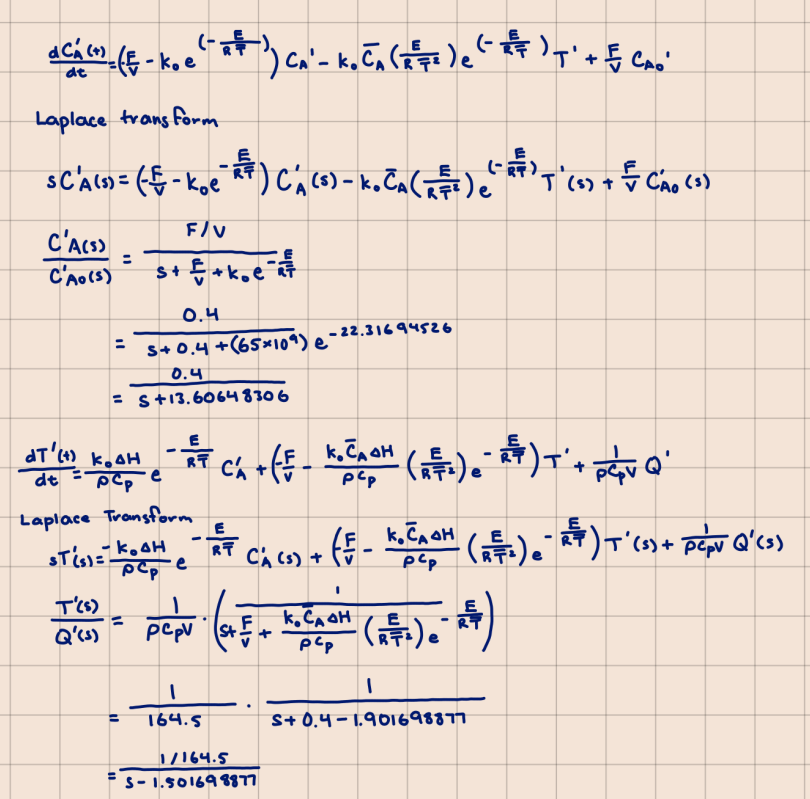 dC'A(t)/dt = (F/V - k₀e^(-E/RT̄)) CA' - k₀ C̄A (E/RT̄²) e^(-E/RT̄) T' + F/V CA₀'
Laplace transform
sC'A(s) = (-F/V - k₀e^-E/RT̄) C'A(s) - k₀ C̄A (E/RT̄²) e^(-E/RT̄) T'(s) + F/V C'A₀(s)
C'A(s)/C'A₀(s) = F/V / s + F/V + k₀e^-E/RT̄
= 0.4 / s + 0.4 + (65×10⁹) e^-22.31694526
= 0.4 / s + 13.60648306
dT'(t)/dt = k₀ΔH/ρCp e^-E/RT̄ C'A + (-F/V - k₀C̄AΔH/ρCp (E/RT̄²) e^-E/RT̄) T' + 1/ρCpV Q'
Laplace Transform
sT'(s) = -k₀ΔH/ρCp e^-E/RT̄ C'A(s) + (-F/V - k₀C̄AΔH/ρCp (E/RT̄²) e^-E/RT̄) T'(s) + 1/ρCpV Q'(s)
T'(s)/Q'(s) = 1/ρCpV · (1 / s + F/V + k₀C̄AΔH/ρCp (E/RT̄²) e^-E/RT̄)
= 1/164.5 · 1 / s + 0.4 - 1.901698877
= 1/164.5 / s - 1.501698877